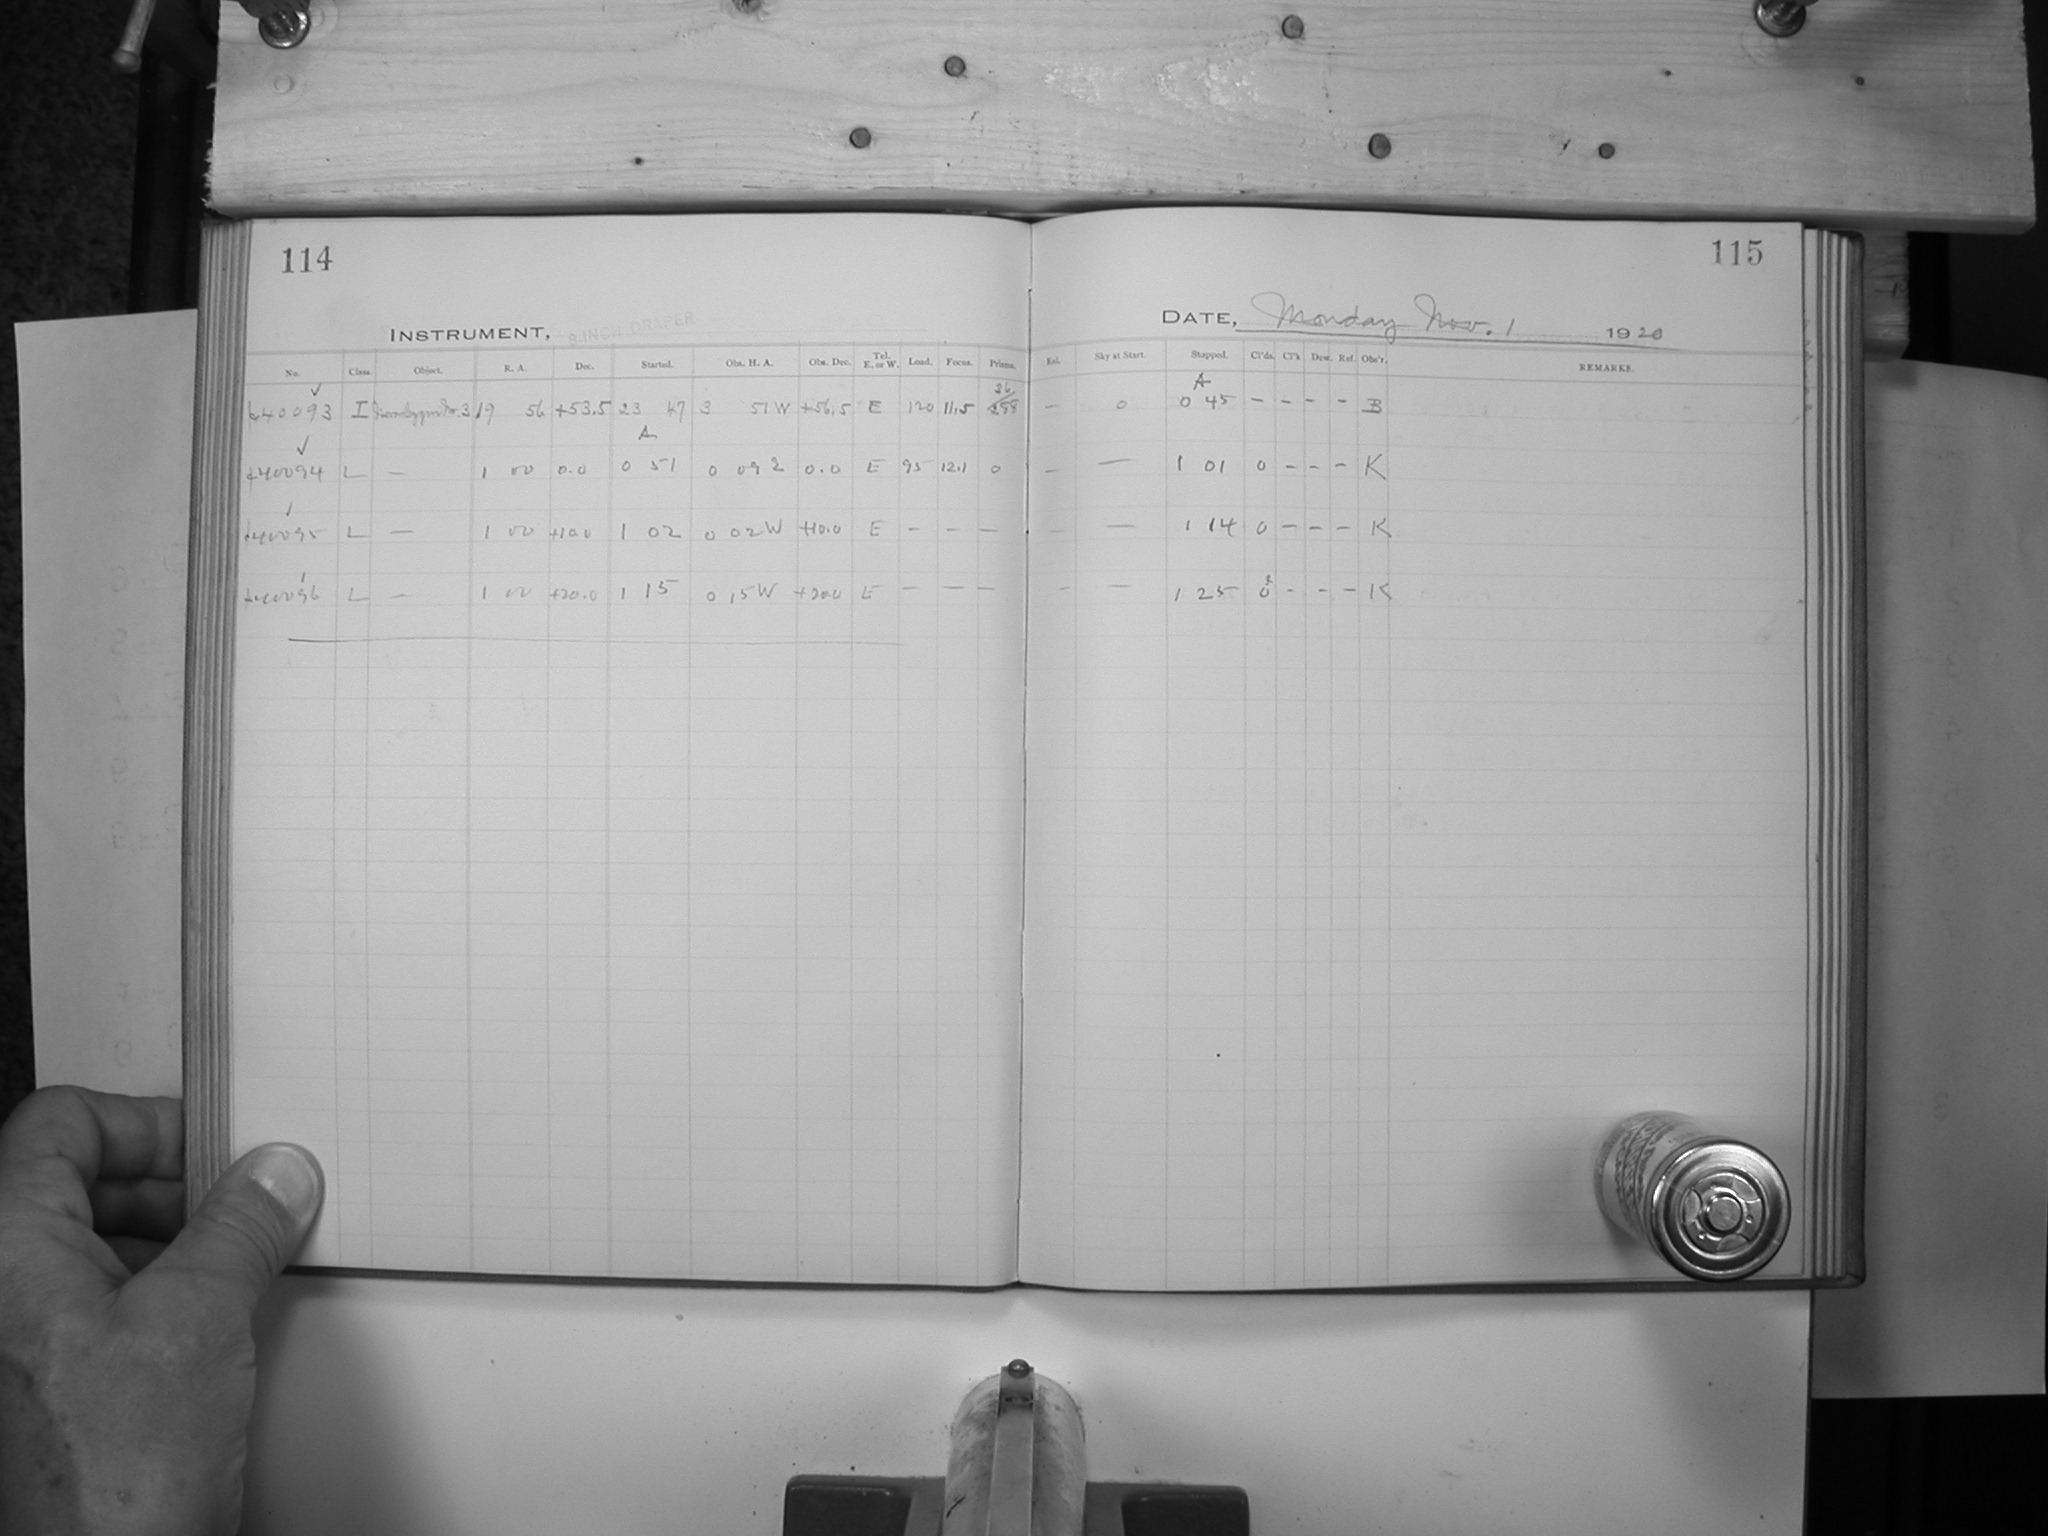 114
115
INSTRUMENT, 8 INCH DRAPER
DATE, Monday Nov. 1 1920
No. Class. Object. R. A. Dec. Started. Obs. H. A. Obs. Dec. Tel. E. or W. Load. Focus. Prisms. Exl. Sky at Start. Stopped. Cl'ds. Cl'k Dew. Ref. Obs'r. REMARKS.
36 A
40093 I 3 19 56 +53.5 23 47 3 51 W +56.5 E 120 11.5 — 0 0 45 – – – – B
A
40094 L — 1 00 0.0 0 51 0 09 0.0 E 95 12.1 0 – — 1 01 0 – – – K
40095 L — 1 00 +10.0 1 02 0 02 W +10.0 E – – — – — 1 14 0 – – – K
40096 L — 1 00 +20.0 1 15 0 15 W +20.0 E – — — – — 1 25 0 – – – K